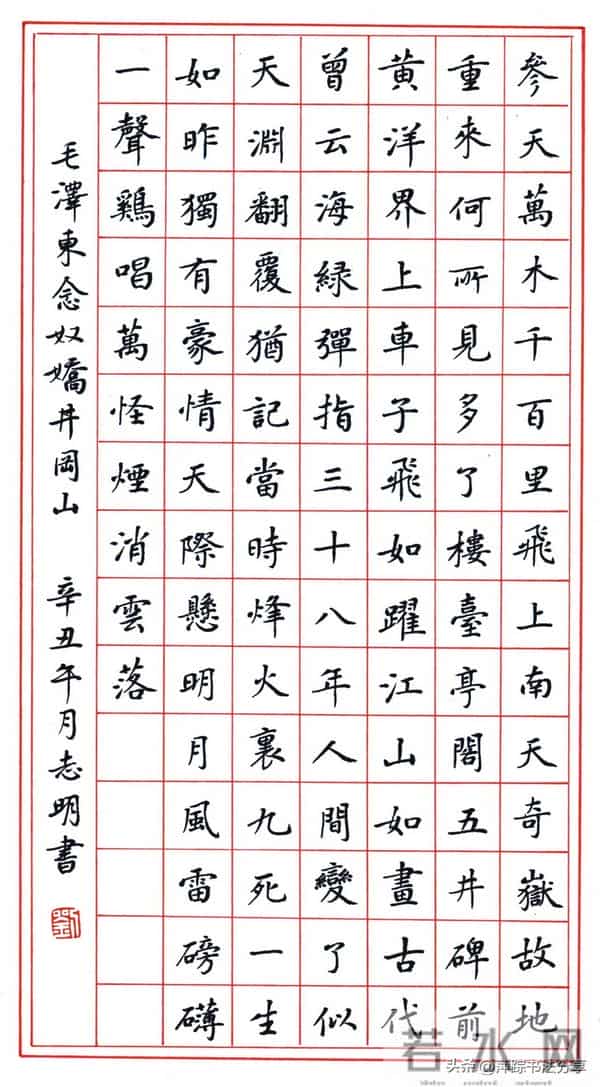 參天萬木千百里飛上南天奇嶽故地
重來何所見多了樓臺亭閣五井碑前
黄洋界上車子飛如躍江山如畫古代
曾云海綠彈指三十八年人間變了似
天淵翻覆猶記當時烽火裏九死一生
如昨獨有豪情天際懸明月風雷磅礴
一聲鷄唱萬怪煙消雲落
毛澤東念奴嬌井岡山 辛丑午月志明書
劉
若水网
头条@萍踪书法分享